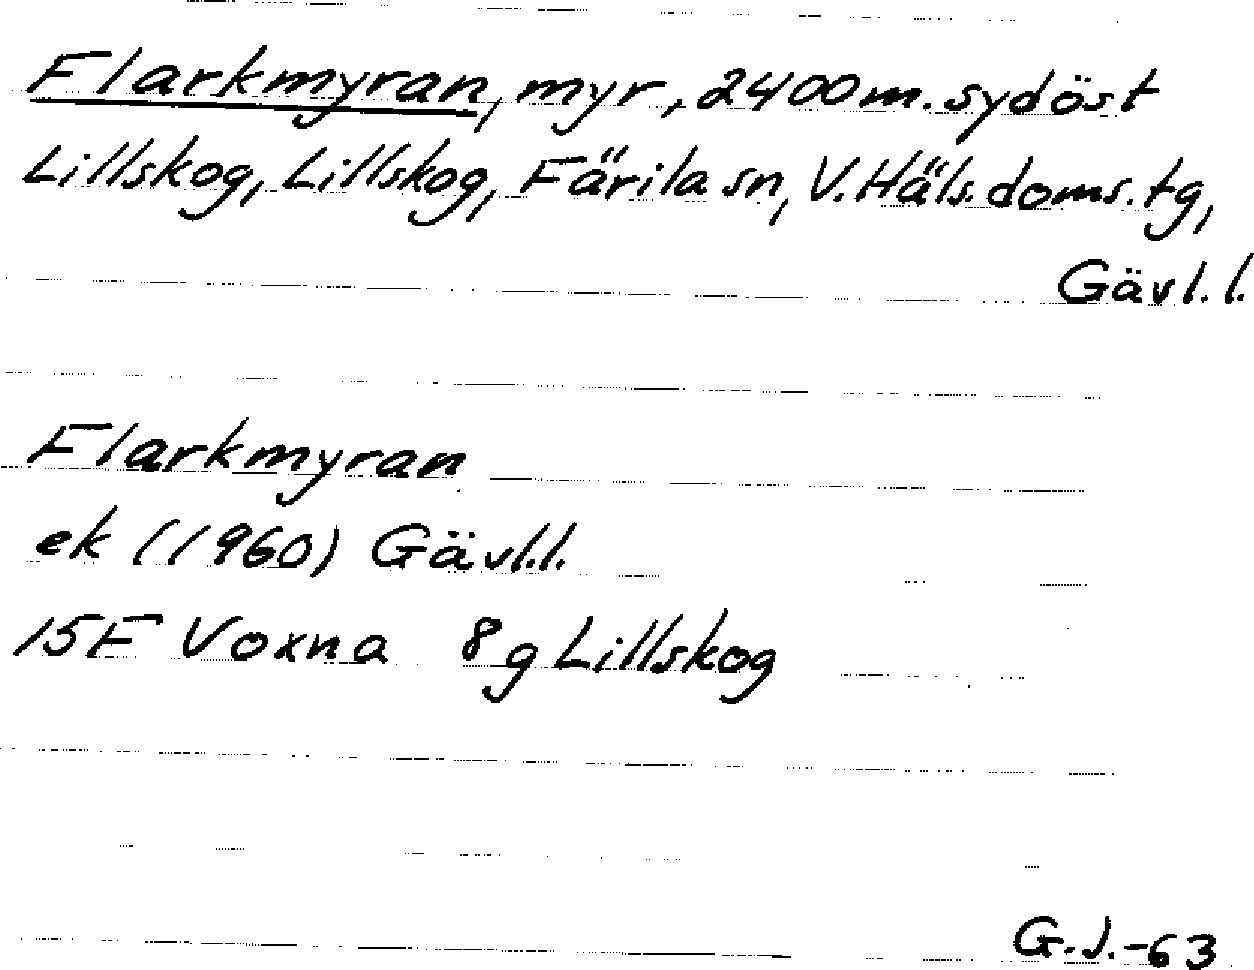 Flarkmyran, myr, 2400 m. sydöst
Lillskog, Lillskog, Färila sn, V. Häls. doms. tg,
Gävl. l.
Flarkmyran
ek (1960) Gävl. l.
15F Voxna 8g Lillskog
G.J. -63